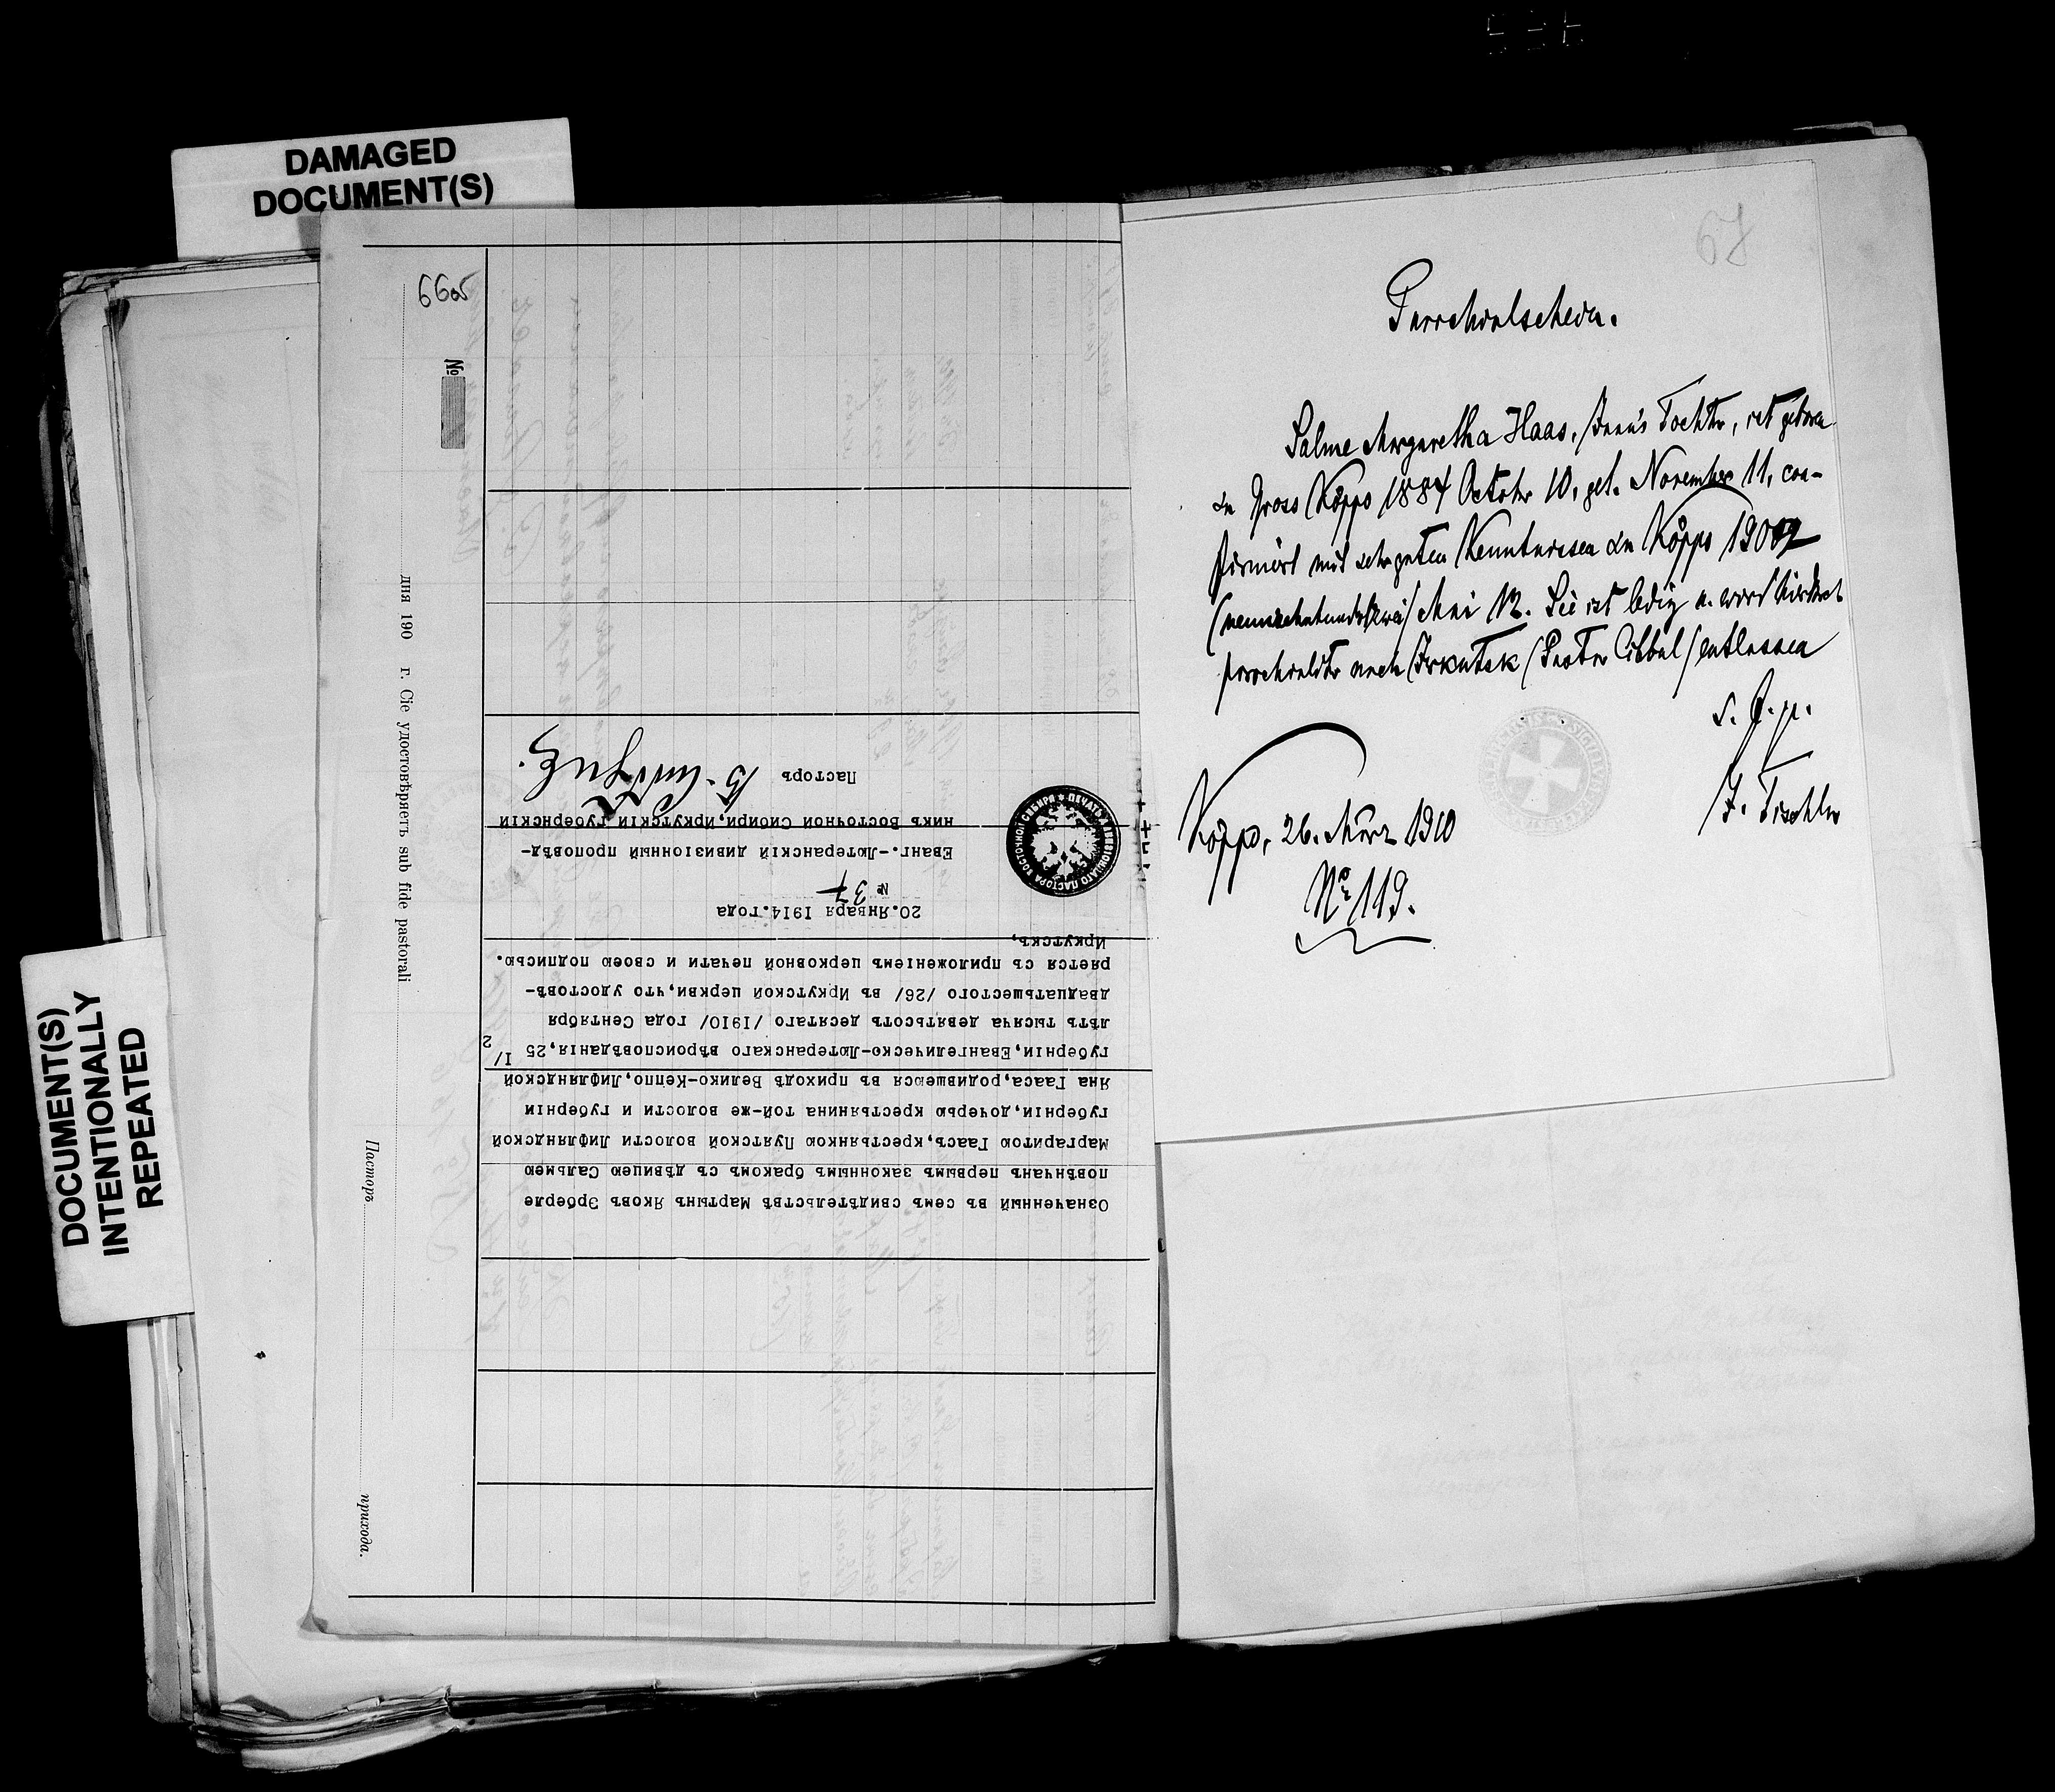 DAMAGED
DOCUMENT(S)
DOCUMENT(S)
INTENTIONALLY
REPEATED
66об
№
дня 190 г. Сіе удостовѣряетъ sub fide pastorali
Пасторъ
прихода.
Означенный въ семъ свидѣтельствѣ Мартынъ Яковъ Эрберде
повѣнчанъ первымъ законнымъ бракомъ съ дѣвицею Сальмею
Маргаритою Гаасъ, крестьянкою Пуятской волости Лифляндской
губерніи, дочерью крестьянина той-же волости и губерніи
Яна Гааса, родившеюся въ приходѣ Велико-Кеппо, Лифляндской
губерніи, Евангелическо-Лютеранскаго вѣроисповѣданія, 25 1/2
лѣтъ тысяча девятьсотъ десятаго /1910/ года Сентября
двадцатьшестого /26/ въ Иркутской церкви, что удостовѣ-
ряется съ приложеніемъ церковной печати и своею подписью.
Иркутскъ,
20.Января 1914.года
№ 37
Еванг.-Лютеранскій дивизіонный проповѣд-
никъ Восточной Сибири, Иркутскій губернскій
Пасторъ
ПЕЧАТЬ ДИВИЗІОННАГО ПАСТОРА ВОСТОЧНОЙ СИБИРИ
67
Parochialschein.
Salme Margaretha Haas, Jaan's Tochter, ist geboren
in Gross Köppo 1884 October 10, get. November 11, con-
firmirt mit sehr guten Kenntnissen in Köppo 1902
(neunzehnhundertzwei) Mai 12. Sie ist ledig u. wird hierdurch
parochialiter nach Irkutsk (Pastor Sibbul) entlassen
s. f. p.
J. Tischler
Köppo, 26. März 1910
№ 119.